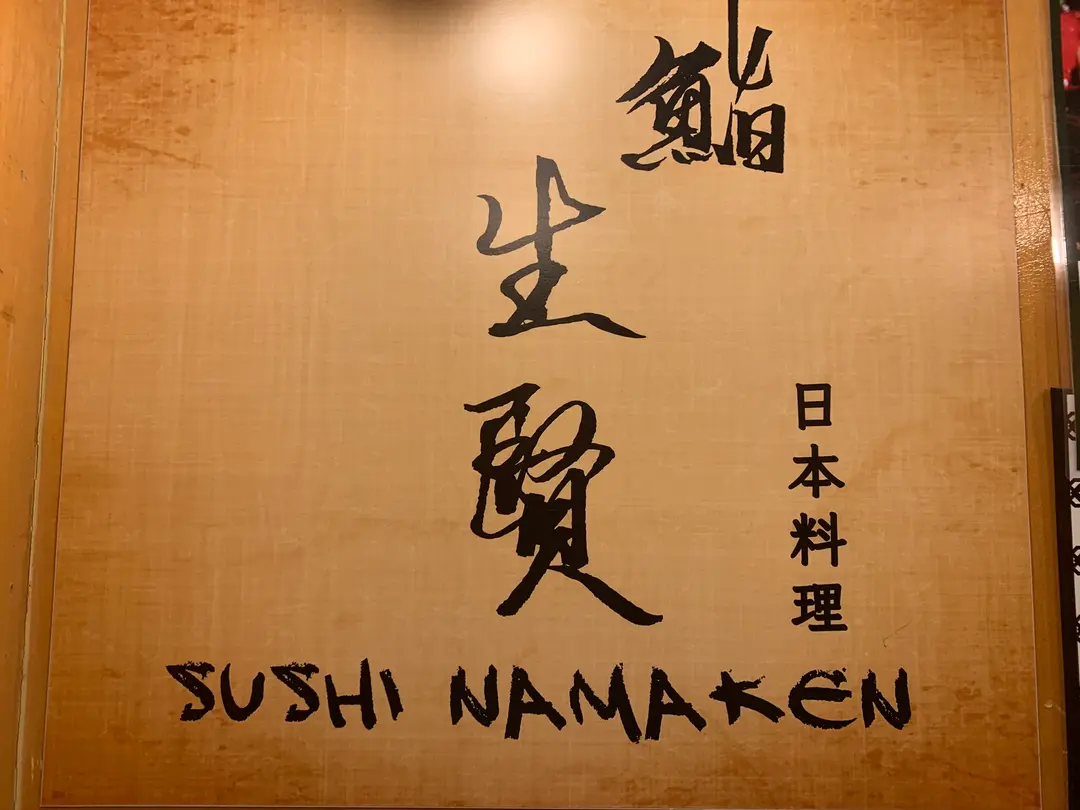 鮨
生賢
日本料理
SUSHI NAMAKEN